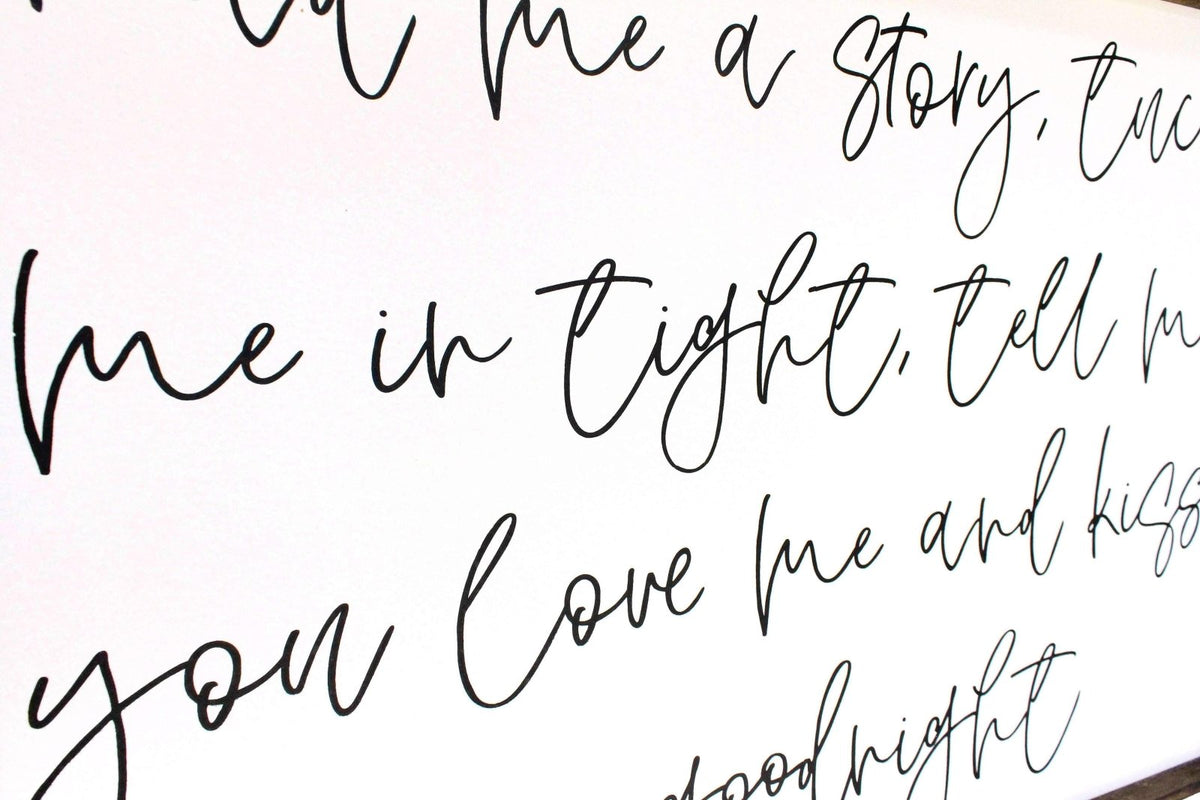 me a story, tuc
me in tight, tell m
you love me and kiss
goodnight